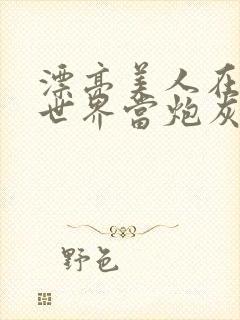 漂亮美人在
世界当炮灰
野色